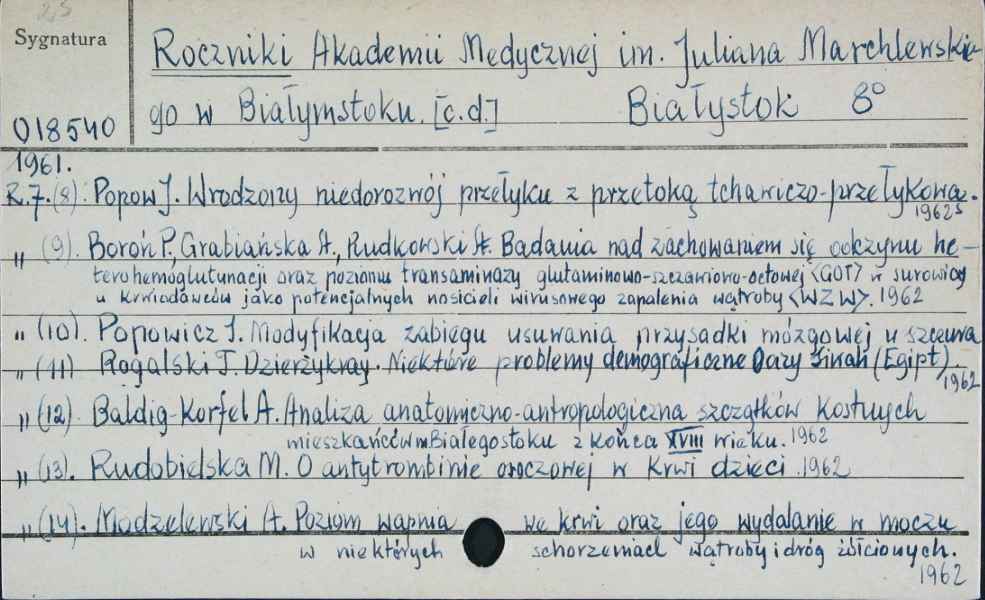 Sygnatura
Roczniki Akademii Medycznej im. Juliana Marchlewskie-
018540 go w Białymstoku. [c.d.] Białystok 8°
1961.
R.7.(8). Popow J. Wrodzony niedorozwój przełyku z przetoką tchawiczo-przełykową.
1962
„ (9). Boroń P., Grabiańska A., Rudkowski A. Badania nad zachowaniem się odczynu he-
terohemoglutynacji oraz poziomu transaminazy glutaminowo-szczawiowo-octowej <GOT> w surowicy
u krwiodawców jako potencjalnych nosicieli wirusowego zapalenia wątroby <WZW>. 1962
„ (10). Popowicz J. Modyfikacja zabiegu usuwania przysadki mózgowej u szczura
„ (11) Rogalski T. Dzierżykray. Niektóre problemy demograficzne Oazy Sinah (Egipt)
1962
„ (12) Baldig-Korfel A. Analiza anatomiczno-antropologiczna szczątków kostnych
mieszkańców m Białegostoku z końca XVIII wieku. 1962
„ (13). Rudobielska M. O antytrombinie osoczowej w krwi dzieci. 1962
„ (14). Modzelewski A. Poziom wapnia we krwi oraz jego wydalanie w moczu
w niektórych schorzeniach wątroby i dróg żółciowych.
1962